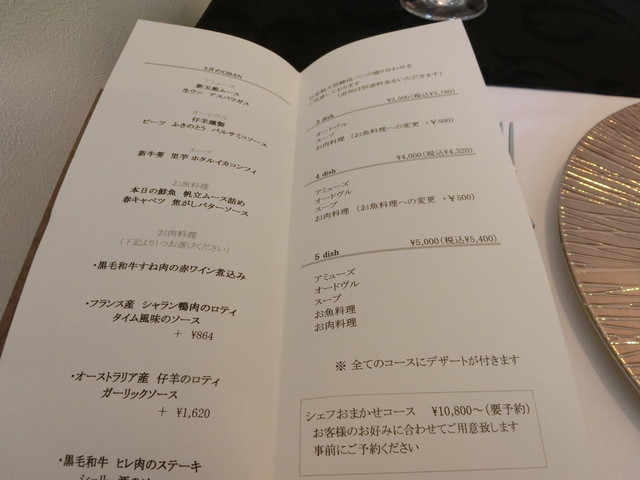 アミューズ
新玉葱ムース
生ウニ アスパラガス
オードヴル
仔羊燻製
ビーツ ふきのとう バルサミコソース
スープ
新牛蒡 里芋 ホタルイカコンフィ
お魚料理
本日の鮮魚 帆立ムース詰め
春キャベツ 焦がしバターソース
お肉料理
(下記より1つお選びください)
・黒毛和牛すね肉の赤ワイン煮込み
・フランス産 シャラン鴨肉のロティ
タイム風味のソース
+ ¥864
・オーストラリア産 仔羊のロティ
ガーリックソース
+ ¥1,620
・黒毛和牛 ヒレ肉のステーキ
自家製天然酵母パンの盛り合わせを
ご用意しております
(追加は別途料金をいただきます)
3 dish ¥3,500(税込¥3,780)
オードヴル
スープ
お肉料理 (お魚料理への変更 +¥500)
4 dish ¥4,000(税込¥4,320)
アミューズ
オードヴル
スープ
お肉料理 (お魚料理への変更 +¥500)
5 dish ¥5,000(税込¥5,400)
アミューズ
オードヴル
スープ
お魚料理
お肉料理
※ 全てのコースにデザートが付きます
シェフおまかせコース ¥10,800～(要予約)
お客様のお好みに合わせてご用意致します
事前にご予約ください